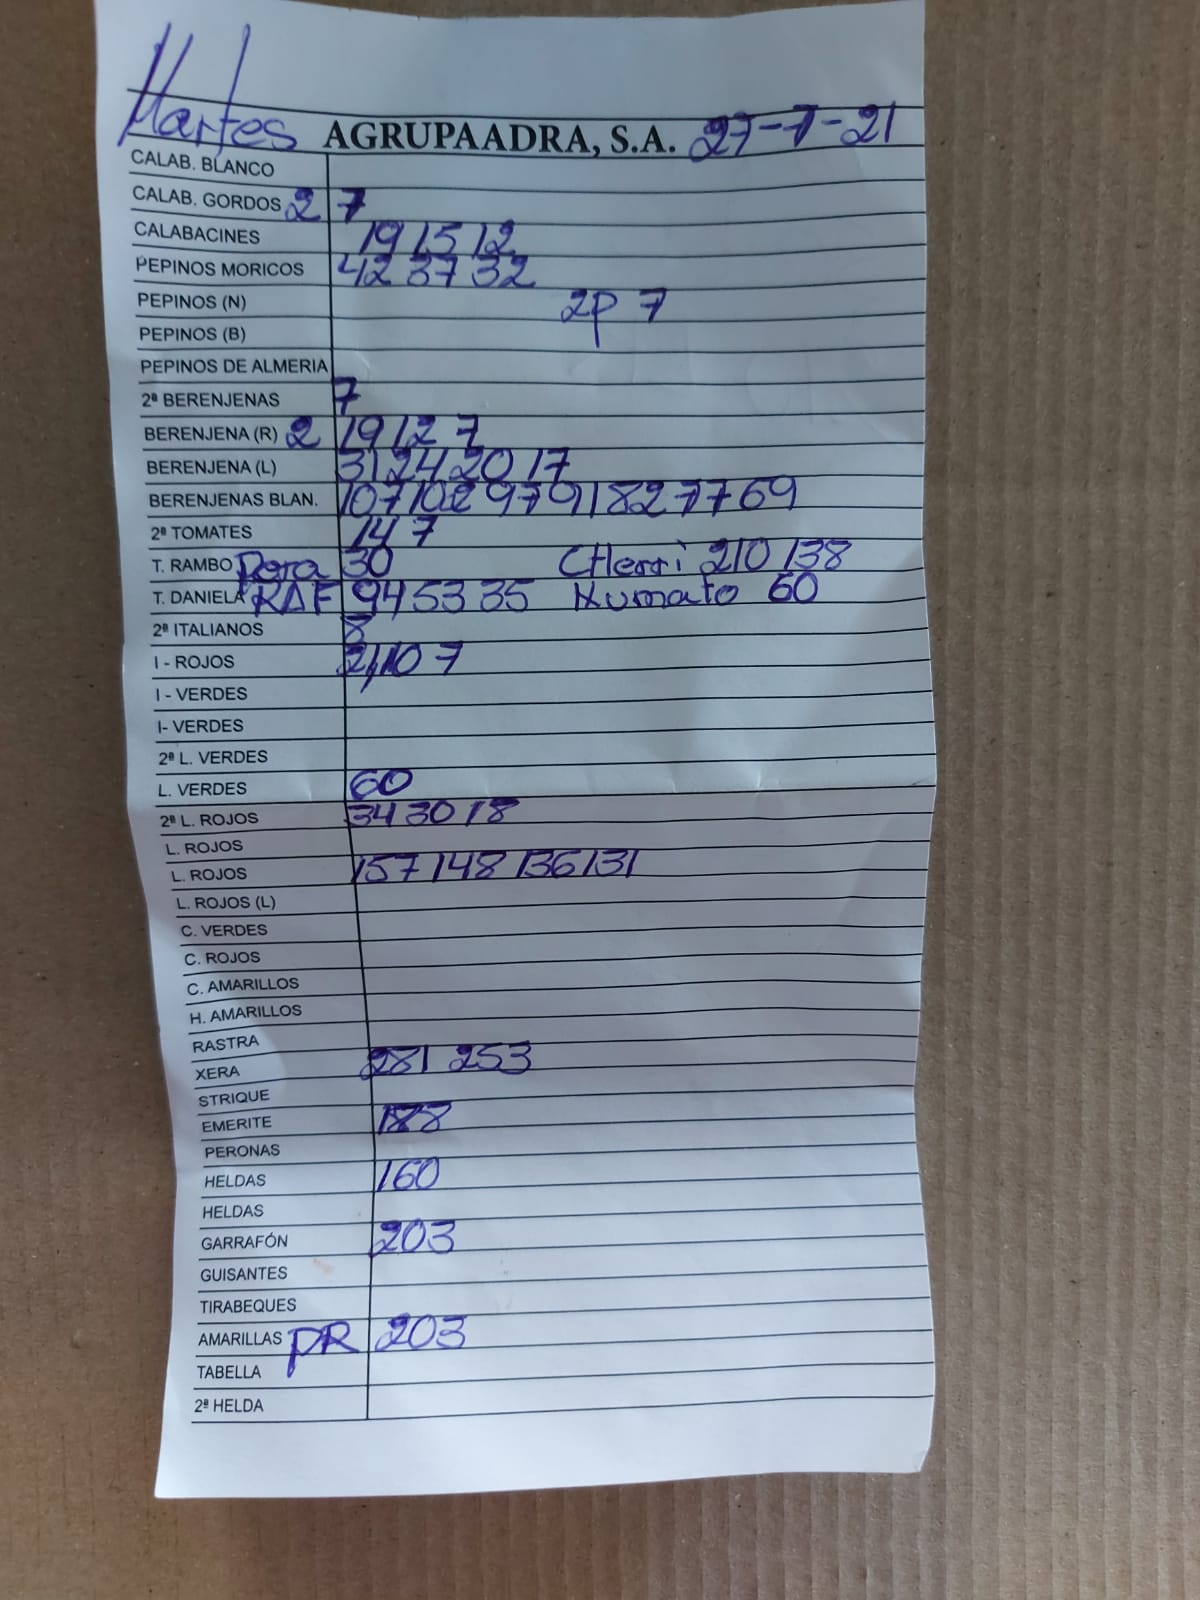 Martes AGRUPAADRA, S.A. 27-7-21
CALAB. BLANCO
CALAB. GORDOS 2 7
CALABACINES 19 15 12
PEPINOS MORICOS 42 37 32
PEPINOS (N) 2P 7
PEPINOS (B)
PEPINOS DE ALMERIA
2ª BERENJENAS 7
BERENJENA (R) 2 19 12 7
BERENJENA (L) 31 24 20 17
BERENJENAS BLAN. 107 102 97 91 82 77 69
2ª TOMATES 14 7
T. RAMBO Pera 30 CHerri 210 138
T. DANIELA RAF 94 53 35 Kumato 60
2ª ITALIANOS 8
I - ROJOS 21 10 7
I - VERDES
I- VERDES
2ª L. VERDES
L. VERDES 60
2ª L. ROJOS 34 30 18
L. ROJOS
L. ROJOS 157 148 136 131
L. ROJOS (L)
C. VERDES
C. ROJOS
C. AMARILLOS
H. AMARILLOS
RASTRA
XERA 281 253
STRIQUE
EMERITE 188
PERONAS
HELDAS 160
HELDAS
GARRAFÓN 203
GUISANTES
TIRABEQUES
AMARILLAS PR 203
TABELLA
2ª HELDA